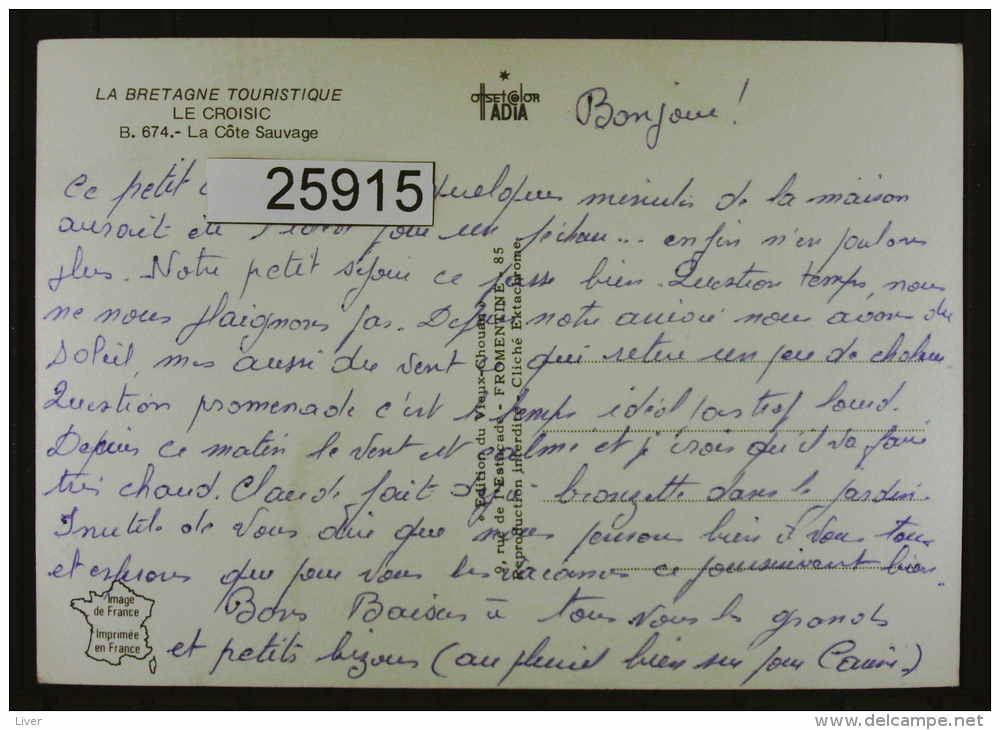 LA BRETAGNE TOURISTIQUE
LE CROISIC
B. 674.- La Côte Sauvage
offsetcolor
ADIA
Bonjour !
25915
Ce petit quelques minutes de la maison
aurait été l'idéal pour un enfin n'en parlons
plus. Notre petit séjour ce passe bien. Question temps, nous
ne nous plaignons pas. Depuis notre arrivée nous avons du
soleil, mes aussi du vent ce qui retire un peu de chaleur
Question promenade c'est le temps idéal pas trop lourd.
Depuis ce matin le vent est calme et je crois qu'il va faire
très chaud. Claude fait bronzette dans le jardin.
Inutile de vous dire que nous pensons bien à vous tous
et espérons que pour vous les vacances ce poursuivent bien.
Bons Baisers à tous vous les grands
et petits bizous (au pluriel bien sur pour )
« Edition du Vieux-Chouan »
9, rue de l'Estacade - FROMENTINE - 85
Reproduction interdite - Cliché Ektachrome
Image
de France
Imprimée
en France
Liver
www.delcampe.net